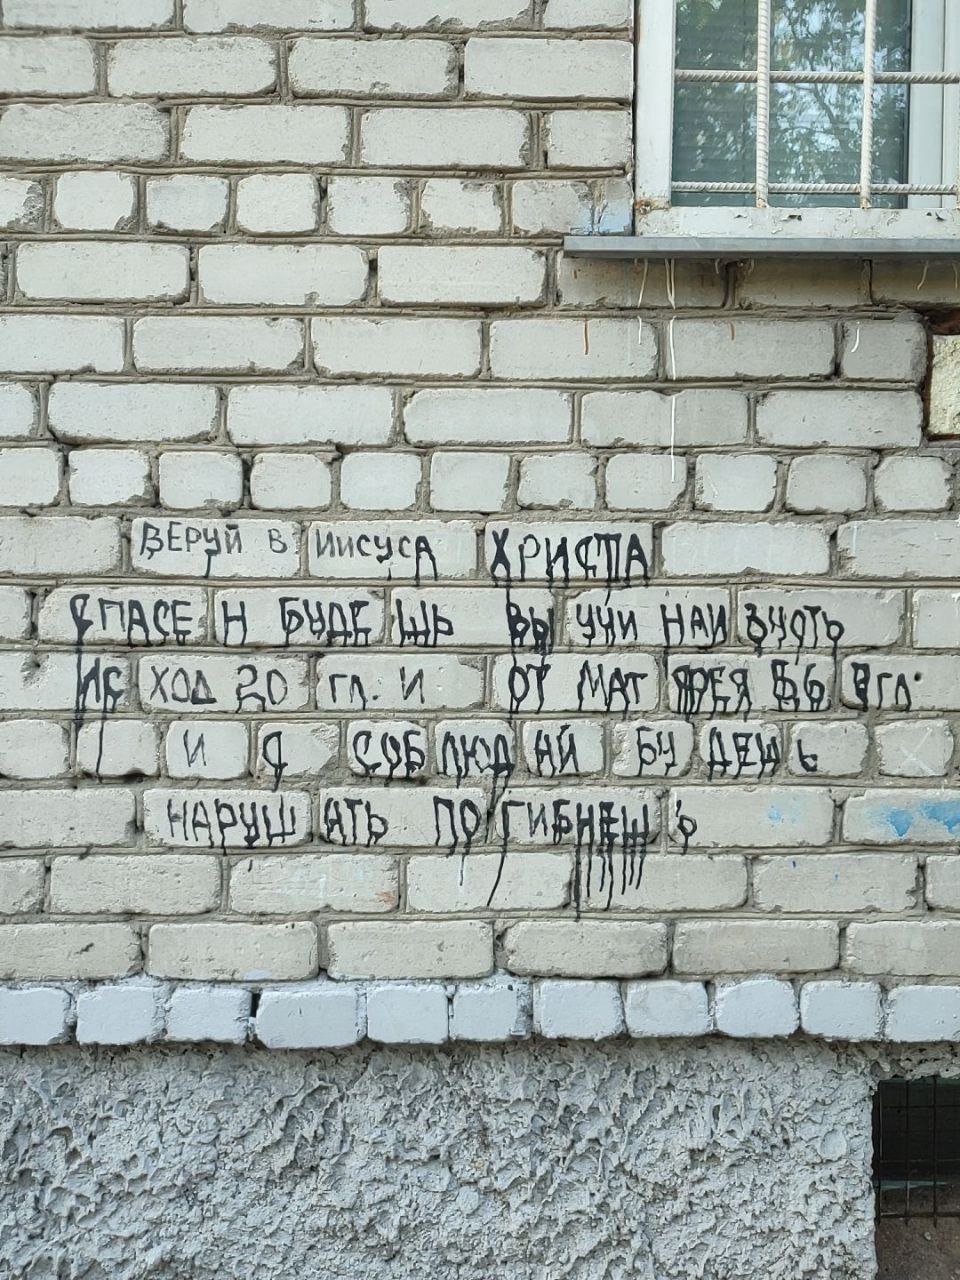 ВЕРУЙ В ИИСУСА ХРИСТА
СПАСЕН БУДЕШЬ ВЫУЧИ НАИЗУСТЬ
ИСХОД 20 ГЛ. И ОТ МАТФЕЯ 5 6 7 ГЛ.
И СОБЛЮДАЙ БУДЕШЬ
НАРУШАТЬ ПОГИБНЕШЬ